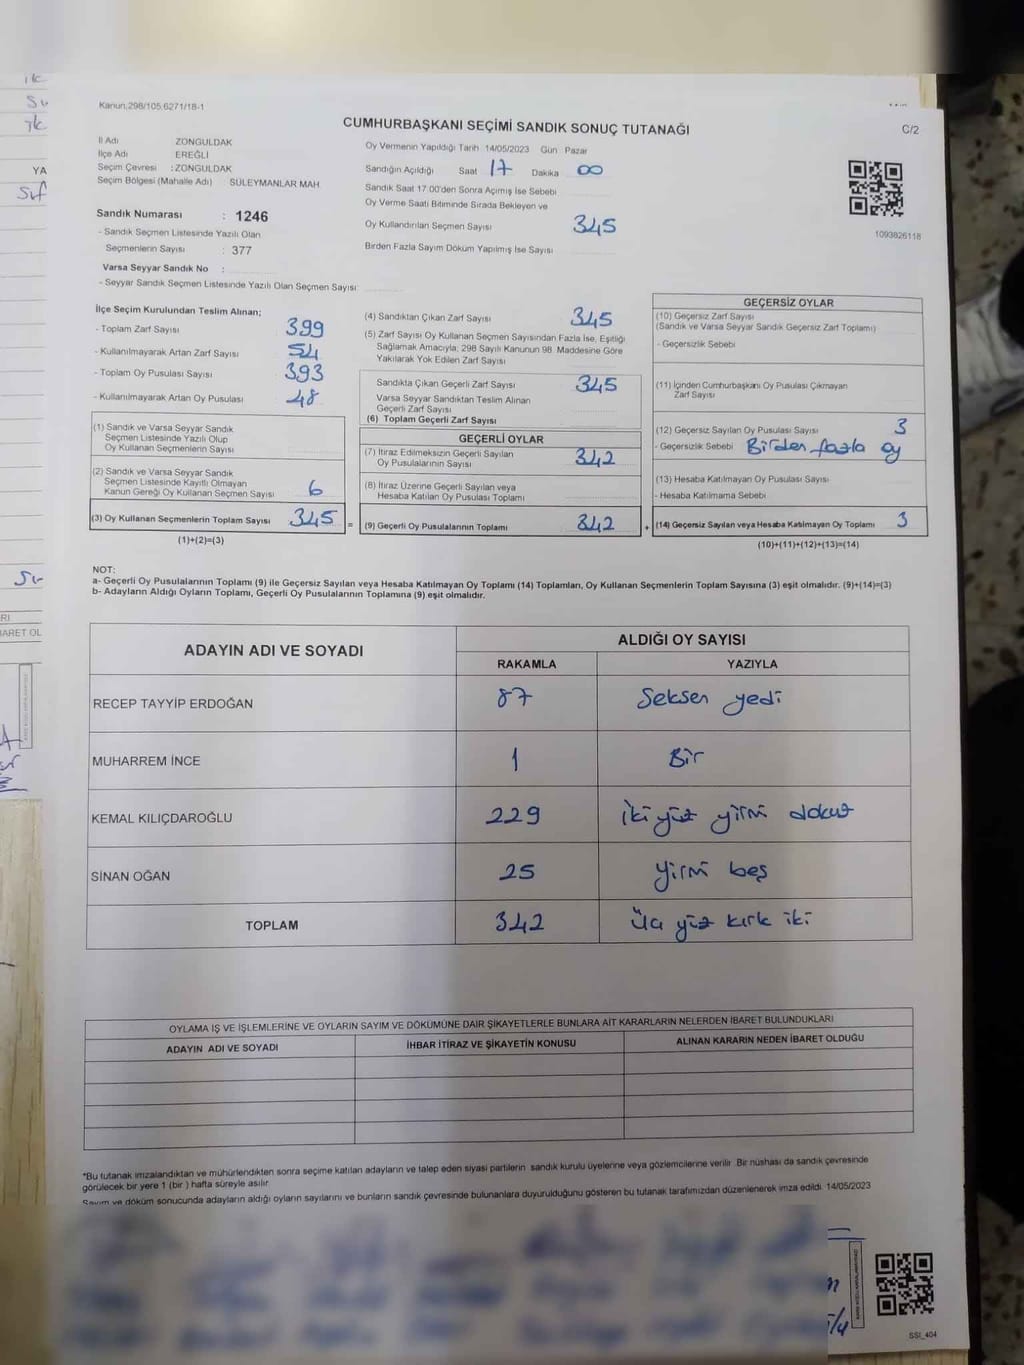 Kanun;298/105,6271/18-1
CUMHURBAŞKANI SEÇİMİ SANDIK SONUÇ TUTANAĞI
C/2
İl Adı ZONGULDAK
İlçe Adı EREĞLİ
Seçim Çevresi : ZONGULDAK
Seçim Bölgesi (Mahalle Adı) SÜLEYMANLAR MAH.
Sandık Numarası : 1246
- Sandık Seçmen Listesinde Yazılı Olan
Seçmenlerin Sayısı : 377
Varsa Seyyar Sandık No :
- Seyyar Sandık Seçmen Listesinde Yazılı Olan Seçmen Sayısı
Oy Vermenin Yapıldığı Tarih 14/05/2023 Gün Pazar
Sandığın Açıldığı Saat 17 Dakika 00
Sandık Saat 17.00'den Sonra Açımış İse Sebebi
Oy Verme Saati Bitiminde Sırada Bekleyen ve
Oy Kullandırılan Seçmen Sayısı 345
Birden Fazla Sayım Döküm Yapılmış İse Sayısı
1093826118
İlçe Seçim Kurulundan Teslim Alınan;
- Toplam Zarf Sayısı 399
- Kullanılmayarak Artan Zarf Sayısı 54
- Toplam Oy Pusulası Sayısı 393
- Kullanılmayarak Artan Oy Pusulası 48
(1) Sandık ve Varsa Seyyar Sandık
Seçmen Listesinde Yazılı Olup
Oy Kullanan Seçmenlerin Sayısı
(2) Sandık ve Varsa Seyyar Sandık
Seçmen Listesinde Kayıtlı Olmayan
Kanun Gereği Oy Kullanan Seçmen Sayısı 6
(3) Oy Kullanan Seçmenlerin Toplam Sayısı 345 =
(1)+(2)=(3)
(4) Sandıktan Çıkan Zarf Sayısı 345
(5) Zarf Sayısı Oy Kullanan Seçmen Sayısından Fazla İse, Eşitliği
Sağlamak Amacıyla; 298 Sayılı Kanunun 98. Maddesine Göre
Yakılarak Yok Edilen Zarf Sayısı
Sandıkta Çıkan Geçerli Zarf Sayısı 345
Varsa Seyyar Sandıktan Teslim Alınan
Geçerli Zarf Sayısı
(6) Toplam Geçerli Zarf Sayısı
GEÇERLİ OYLAR
(7) İtiraz Edilmeksizin Geçerli Sayılan
Oy Pusulalarının Sayısı 342
(8) İtiraz Üzerine Geçerli Sayılan veya
Hesaba Katılan Oy Pusulası Toplamı
(9) Geçerli Oy Pusulalarının Toplamı 342 +
GEÇERSİZ OYLAR
(10) Geçersiz Zarf Sayısı
(Sandık ve Varsa Seyyar Sandık Geçersiz Zarf Toplamı)
- Geçersizlik Sebebi
(11) İçinden Cumhurbaşkanı Oy Pusulası Çıkmayan
Zarf Sayısı
(12) Geçersiz Sayılan Oy Pusulası Sayısı 3
- Geçersizlik Sebebi Birden fazla oy
(13) Hesaba Katılmayan Oy Pusulası Sayısı
- Hesaba Katılmama Sebebi
(14) Geçersiz Sayılan veya Hesaba Katılmayan Oy Toplamı 3
(10)+(11)+(12)+(13)=(14)
NOT:
a- Geçerli Oy Pusulalarının Toplamı (9) ile Geçersiz Sayılan veya Hesaba Katılmayan Oy Toplamı (14) Toplamları, Oy Kullanan Seçmenlerin Toplam Sayısına (3) eşit olmalıdır. (9)+(14)=(3)
b- Adayların Aldığı Oyların Toplamı, Geçerli Oy Pusulalarının Toplamına (9) eşit olmalıdır.
ADAYIN ADI VE SOYADI ALDIĞI OY SAYISI
RAKAMLA YAZIYLA
RECEP TAYYİP ERDOĞAN 87 Seksen yedi
MUHARREM İNCE 1 Bir
KEMAL KILIÇDAROĞLU 229 İki yüz yirmi dokuz
SİNAN OĞAN 25 yirmi beş
TOPLAM 342 Üç yüz kırk iki
OYLAMA İŞ VE İŞLEMLERİNE VE OYLARIN SAYIM VE DÖKÜMÜNE DAİR ŞİKAYETLERLE BUNLARA AİT KARARLARIN NELERDEN İBARET BULUNDUKLARI
ADAYIN ADI VE SOYADI İHBAR İTİRAZ VE ŞİKAYETİN KONUSU ALINAN KARARIN NEDEN İBARET OLDUĞU
*Bu tutanak imzalandıktan ve mühürlendikten sonra seçime katılan adayların ve talep eden siyasi partilerin sandık kurulu üyelerine veya gözlemcilerine verilir. Bir nüshası da sandık çevresinde
görülecek bir yere 1 (bir ) hafta süreyle asılır.
Sayım ve döküm sonucunda adayların aldığı oyların sayılarını ve bunların sandık çevresinde bulunanlara duyurulduğunu gösteren bu tutanak tarafımızdan düzenlenerek imza edildi. 14/05/2023
SSI_404